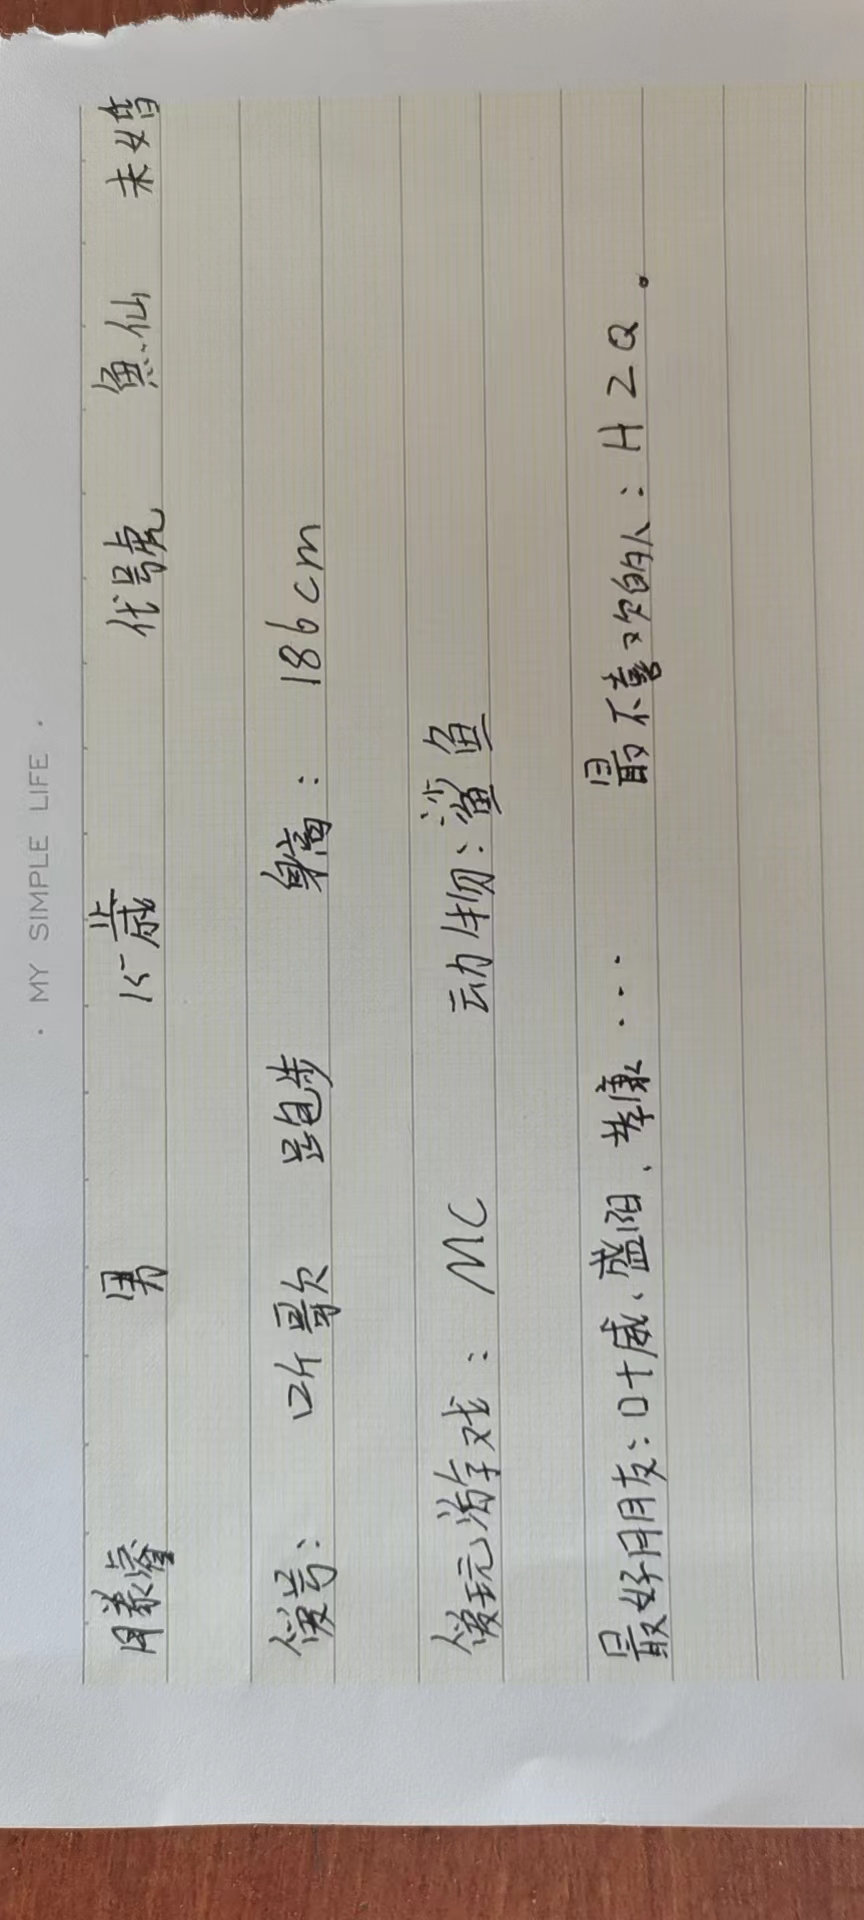 · MY SIMPLE LIFE ·
滕睿 男 15歳 代号虎 魚仙 未婚
爱号： 听歌 跑步 身高：186cm
爱玩游戏：MC 动物：鲨鱼
最好朋友：叶威、盛阳、孝康... 最不喜欢的人：HZQ。